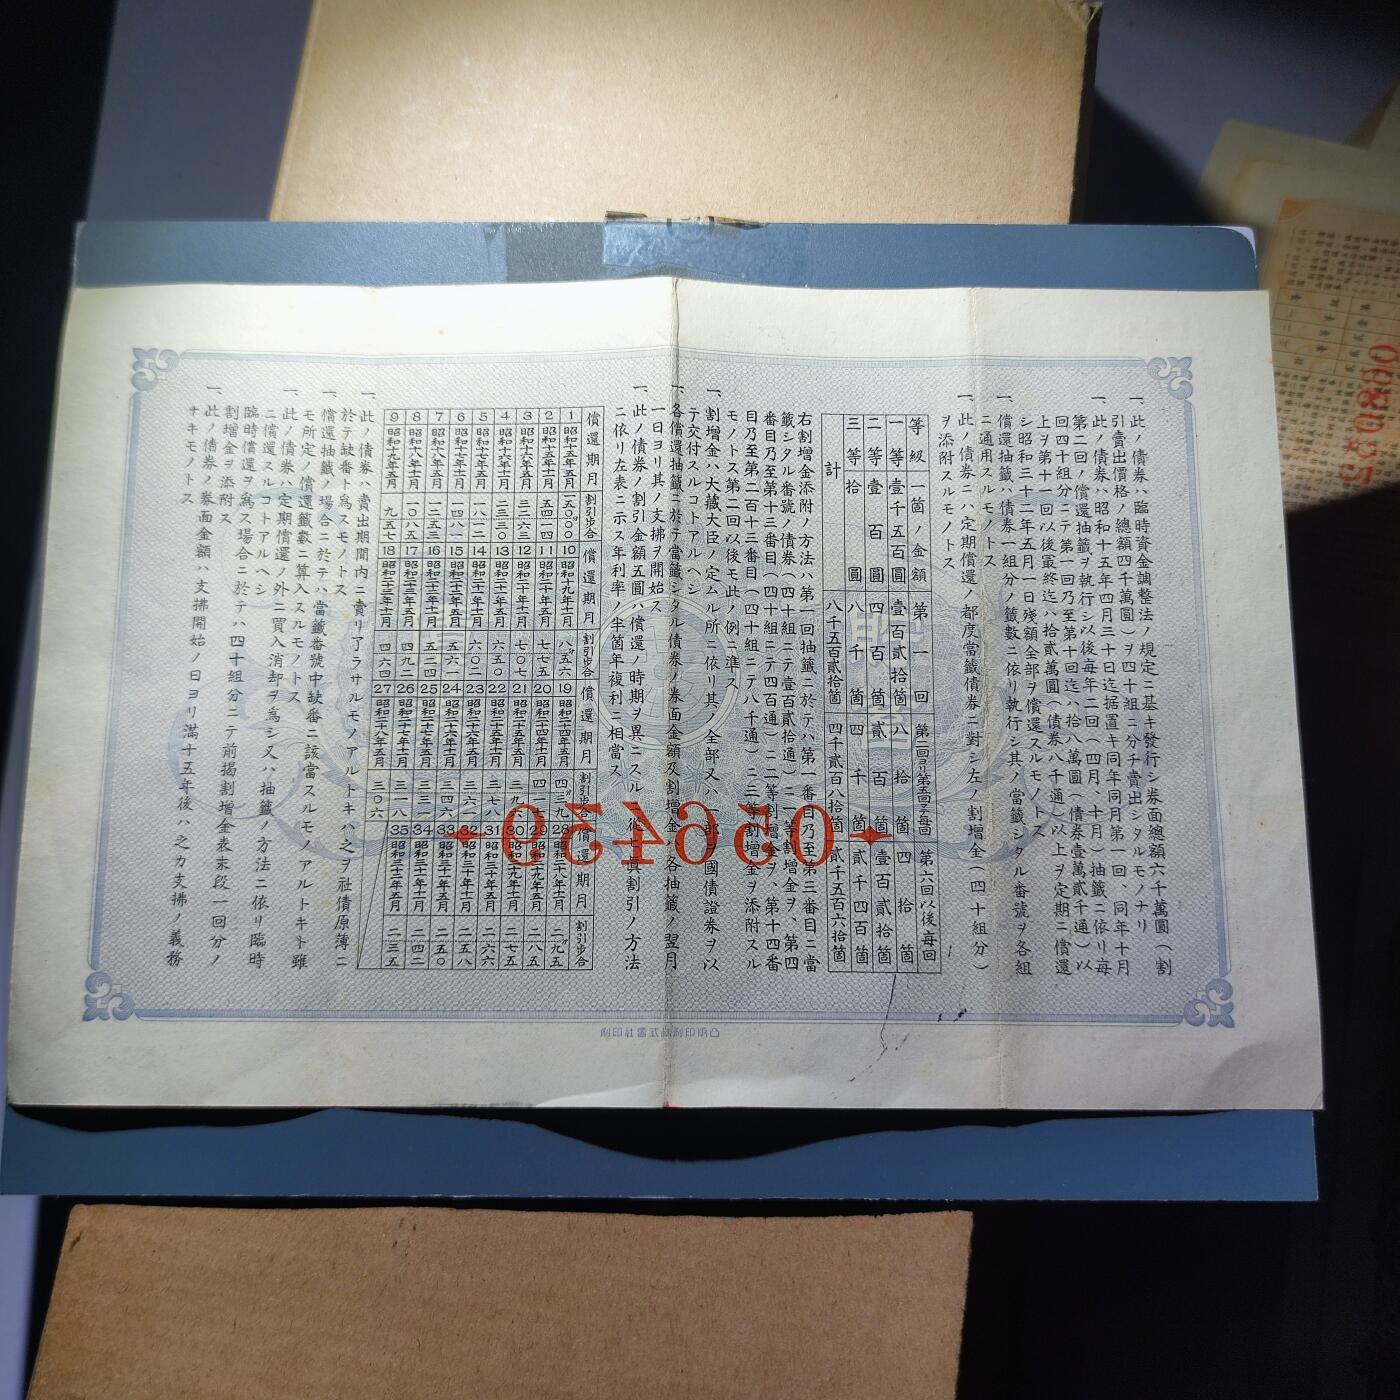 一、此ノ債券ハ臨時資金調整法ノ規定ニ基キ發行シ券面總額六千萬圓(割
引賣出價格ノ總額四千萬圓)ヲ四十組ニ分チ賣出シタルモノナリ
一、此ノ債券ハ昭和十五年四月三十日迄据置キ同年同月第一回、同年十月
第二回ノ償還抽籤ヲ執行シ以後每年二回(四月、十月)抽籤ニ依リ每
回四十組分ニテ第一回乃至第十回迄ハ拾八萬圓(債券壹萬貳千通)以
上ヲ第十一回以後最終迄ハ拾貳萬圓(債券八千通)以上ヲ定期ニ償還
シ昭和三十二年五月一日殘額全部ヲ償還スルモノトス
一、償還抽籤ハ債券一組分ノ籤數ニ依リ執行シ其ノ當籤シタル番號ヲ各組
ニ通用スルモノトス
一、此ノ債券ニハ定期償還ノ都度當籤債券ニ對シ左ノ割增金(四十組分)
ヲ添附スルモノトス
等級 一箇ノ金額 第一回 第二回乃至第五回每回 第六回以後每回
一等 壹千五百圓 壹百貳拾箇 八拾箇 四拾箇
二等 壹百圓 四百箇 貳百箇 壹百貳拾箇
三等 拾圓 八千箇 四千箇 貳千四百箇
計 八千五百貳拾箇 四千貳百八拾箇 貳千五百六拾箇
右割增金添附ノ方法ハ第一回抽籤ニ於テハ第一番目乃至第三番目ニ當
籤シタル番號ノ債券(四十組ニテ壹百貳拾通)ニ一等割增金ヲ、第四
番目乃至第十三番目(四十組ニテ四百通)ニ二等割增金ヲ、第十四番
目乃至第二百十三番目(四十組ニテ八千通)ニ三等割增金ヲ添附スル
モノトス第二回以後モ此ノ例ニ準ス
一、割增金ハ大藏大臣ノ定ムル所ニ依リ其ノ全部又ハ一部ヲ國債證券ヲ以
テ交付スルコトアルヘシ
一、各償還抽籤ニ於テ當籤シタル債券ノ券面金額及割增金ハ各抽籤ノ翌月
一日ヨリ其ノ支拂ヲ開始ス
一、此ノ債券ノ割引金額五圓ハ償還ノ時期ヲ異ニスルニ從ヒ眞割引ノ方法
ニ依リ左表ニ示ス年利率、半箇年複利ニ相當ス
償還期月 割引步合 償還期月 割引步合 償還期月 割引步合 償還期月 割引步合
1 昭和十五年五月 一五〇〇〇 10 昭和十九年十一月 八五六 19 昭和二十四年五月 四三九 28 昭和二十八年十一月 二九五
2 昭和十五年十一月 五四一四 11 昭和二十年五月 七七五 20 昭和二十四年十一月 四一七 29 昭和二十九年五月 二八五
3 昭和十六年五月 三二六三 12 昭和二十年十一月 七〇七 21 昭和二十五年五月 三九六 30 昭和二十九年十一月 二七五
4 昭和十六年十一月 二三三〇 13 昭和二十一年五月 六五〇 22 昭和二十五年十一月 三七八 31 昭和三十年五月 二六六
5 昭和十七年五月 一八一二 14 昭和二十一年十一月 六〇二 23 昭和二十六年五月 三六一 32 昭和三十年十一月 二五八
6 昭和十七年十一月 一四八一 15 昭和二十二年五月 五六一 24 昭和二十六年十一月 三四六 33 昭和三十一年五月 二五〇
7 昭和十八年五月 一二五三 16 昭和二十二年十一月 五二四 25 昭和二十七年五月 三三一 34 昭和三十一年十一月 二四二
8 昭和十八年十一月 一〇八五 17 昭和二十三年五月 四九二 26 昭和二十七年十一月 三一八 35 昭和三十二年五月 二三五
9 昭和十九年五月 九五七 18 昭和二十三年十一月 四六四 27 昭和二十八年五月 三〇六
一、此ノ債券ハ賣出期間内ニ賣リ了ラサルモノアルトキハ之ヲ社債原簿ニ
於テ缺番ト爲スモノトス
一、償還抽籤ノ場合ニ於テハ當籤番號中缺番ニ該當スルモノアルトキト雖
モ所定ノ償還籤數ニ算入スルモノトス
一、此ノ債券ハ定期償還ノ外ニ買入消却ヲ爲シ又ハ抽籤ノ方法ニ依リ臨時
ニ償還スルコトアルヘシ
臨時償還ヲ爲ス場合ニ於テハ四十組分ニテ前揭割增金表末段一回分ノ
割增金ヲ添附ス
一、此ノ債券ノ券面金額ハ支拂開始ノ日ヨリ滿十五年後ハ之カ支拂ノ義務
ナキモノトス
056450
凸版印刷株式會社印刷